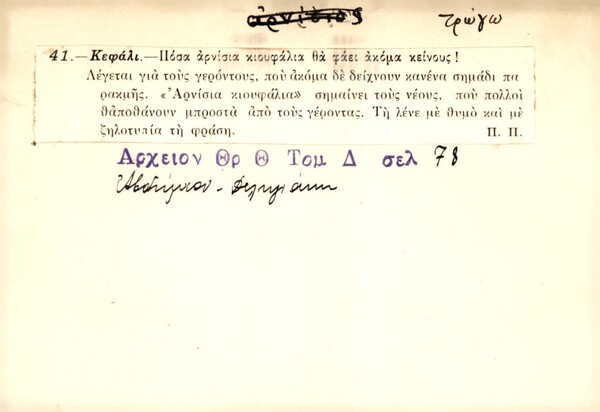 ἀρνίσιος τρώγω
41.—Κεφάλι.—Πόσα ἀρνίσια κιουφάλια θὰ φάει ἀκόμα κείνους!
Λέγεται γιὰ τοὺς γερόντους, ποὺ ἀκόμα δὲ δείχνουν κανένα σημάδι πα
ρακμῆς. «Ἀρνίσια κιουφάλια» σημαίνει τοὺς νέους, ποὺ πολλοὶ
θἀποθάνουν μπροστὰ ἀπὸ τοὺς γέροντας. Τὴ λένε μὲ θυμὸ καὶ μὲ
ζηλοτυπία τὴ φράση. Π. Π.
Αρχειον Θρ Θ Τομ Δ σελ 78